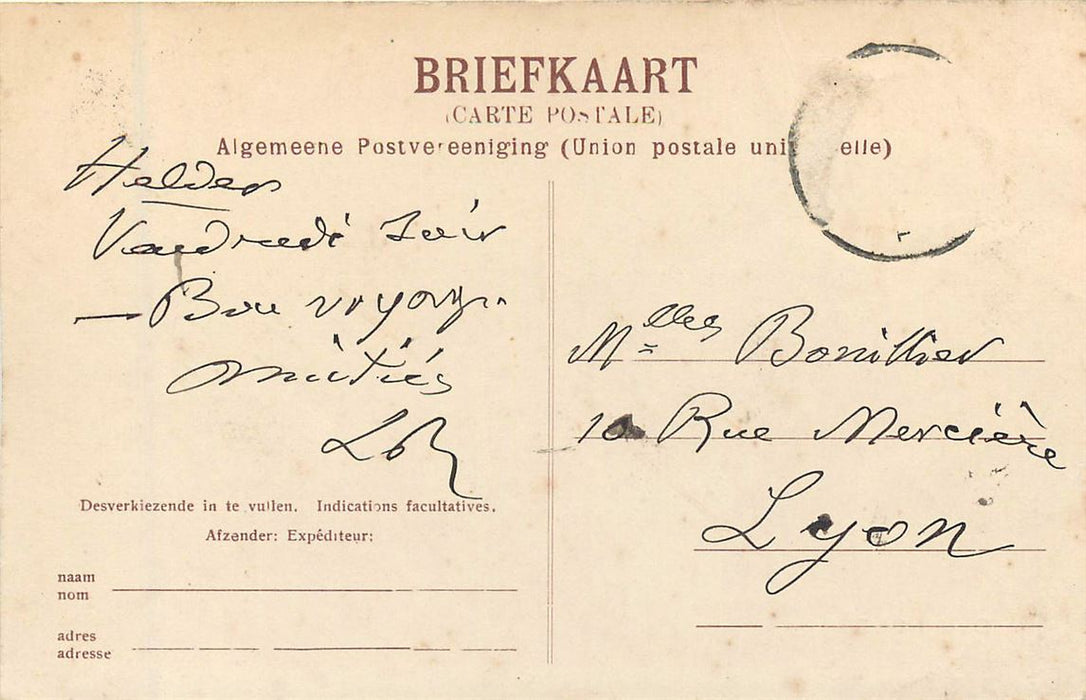 BRIEFKAART
(CARTE POSTALE)
Algemeene Postvereeniging (Union postale uni elle)
Helder
Vendredi soir
— Bon voyage
Amitiés
Mlles Bouillier
10 Rue Mercière
Lyon
Desverkiezende in te vullen. Indications facultatives.
Afzender: Expéditeur:
naam
nom
adres
adresse